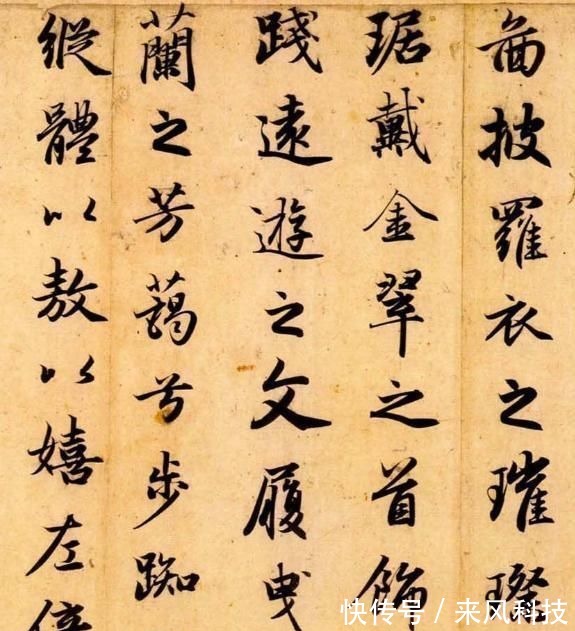 啚披羅衣之璀璨
琚戴金翠之首飾
踐遠遊之文履曳
蘭之芳藹兮步踟
縱體以敖以嬉左倚
快传号 / 来风科技